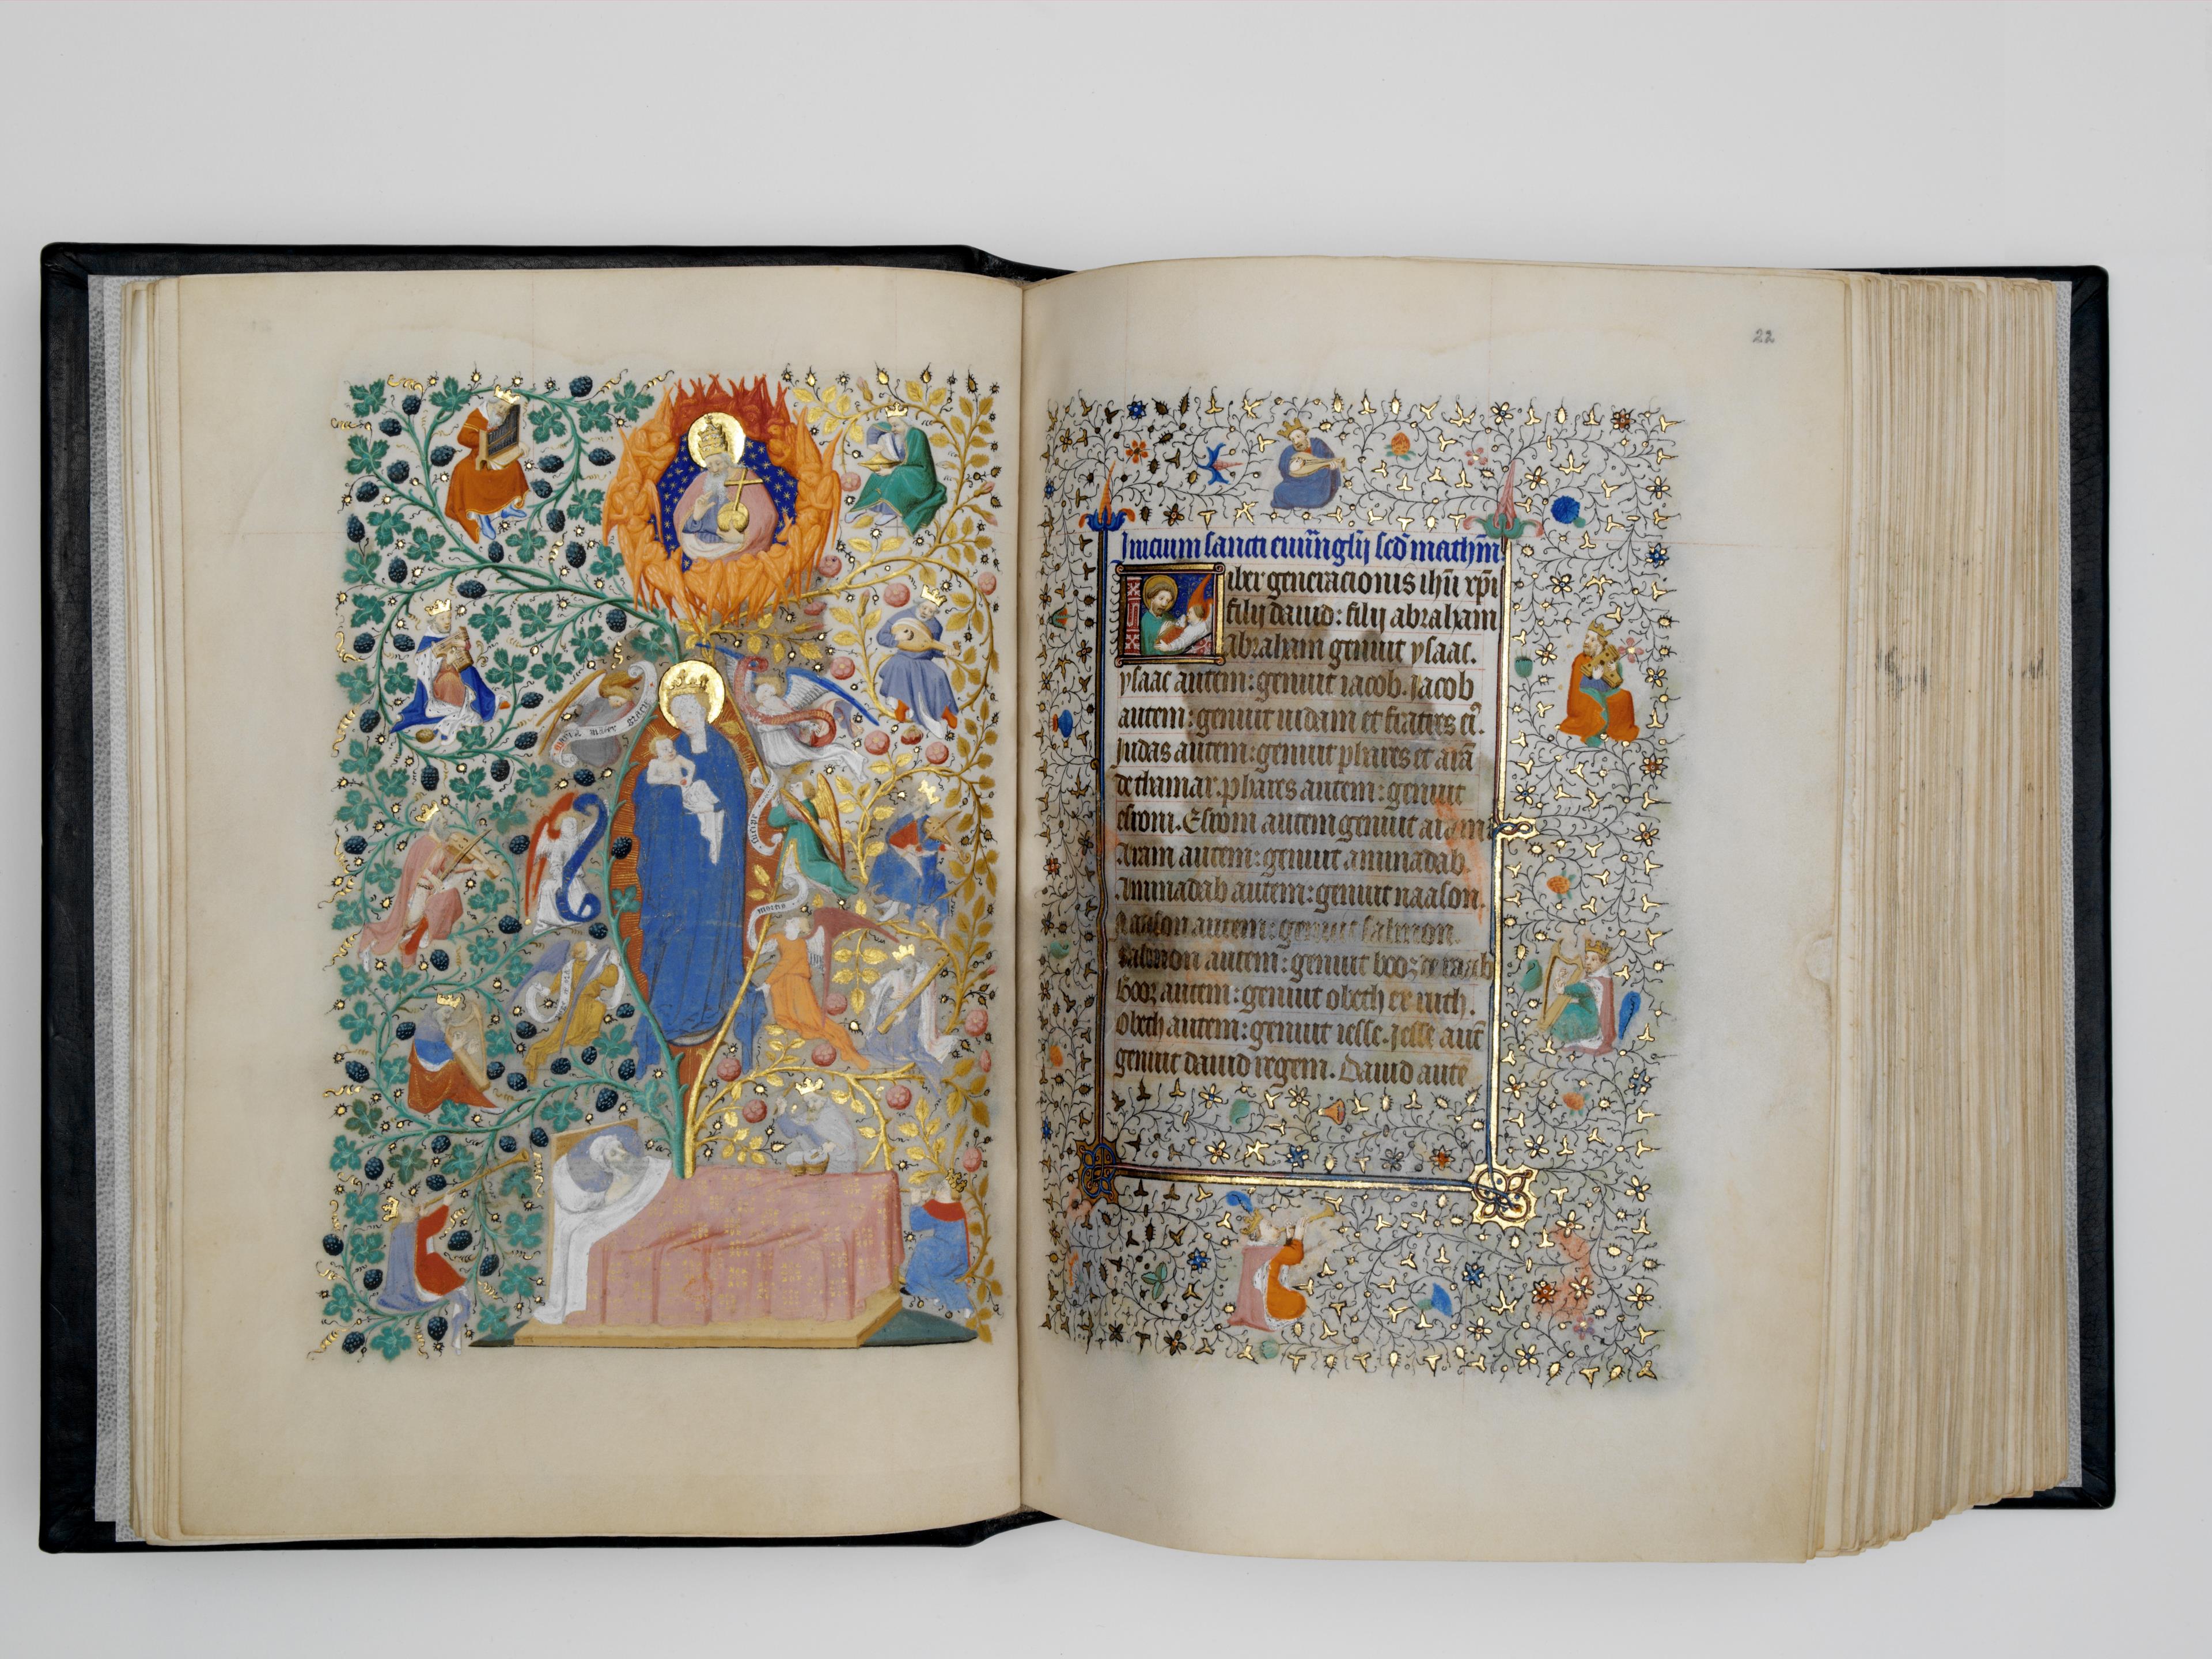 maria mater gracie
mater
22
Inicium sancti euuñglij scd̄ mathm̄
Liber generacionis ihū xp̄i
filij dauid: filij abraham
Abraham genuit ysaac.
ysaac autem: genuit iacob. Jacob
autem: genuit iudam et fratres ei9.
Judas autem: genuit phares et arā
de thamar. phares autem: genuit
esrom. Esrom autem genuit aram
Aram autem: genuit aminadab.
Aminadab autem: genuit naason.
Naason autem: genuit salmon.
Salmon autem: genuit booz de raab
Booz autem: genuit obeth ex ruth.
Obeth autem: genuit iesse. Jesse aut̄
genuit dauid regem. Dauid autē